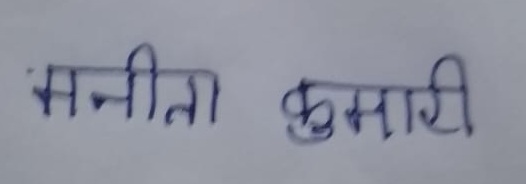 मनीता कुमारी